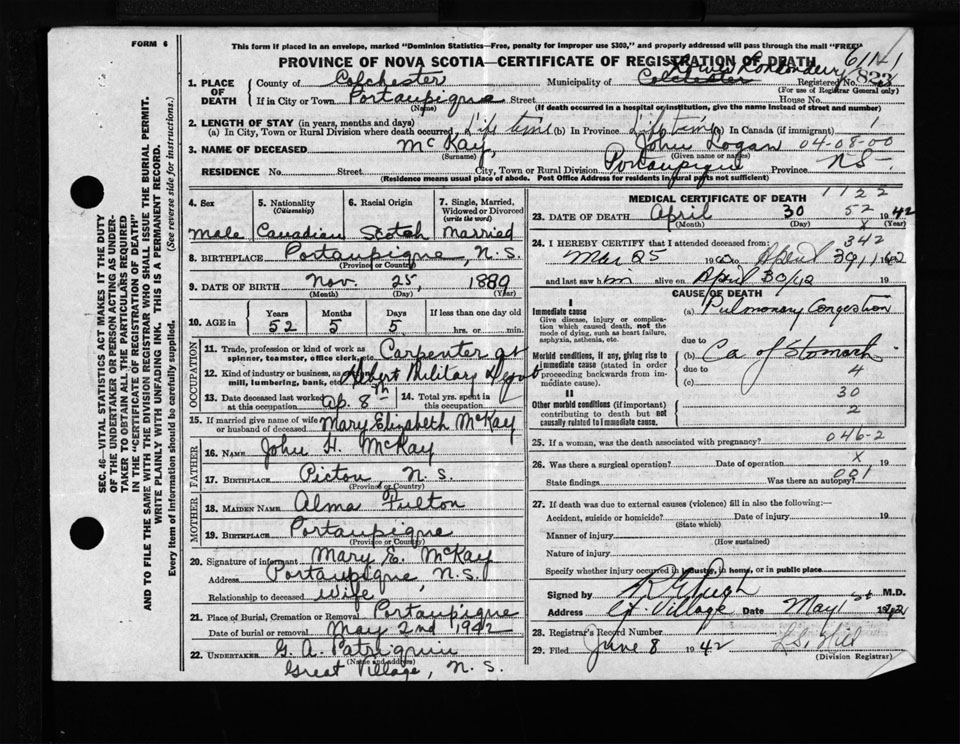 FORM 6
This form if placed in an envelope, marked "Dominion Statistics—Free, penalty for improper use $300," and properly addressed will pass through the mail "FREE"
PROVINCE OF NOVA SCOTIA—CERTIFICATE OF REGISTRATION OF DEATH
61141
1. PLACE OF DEATH
County of Colchester
Municipality of Colchester
Londonderry
Registered No. 823
(For use of Registrar General only)
If in City or Town Portaupique Street House No.
(Name)
(If death occurred in a hospital or institution, give the name instead of street and number)
2. LENGTH OF STAY (in years, months and days)
(a) In City, Town or Rural Division where death occurred, Life time (b) In Province Life time (c) In Canada (if immigrant)
3. NAME OF DECEASED McKay, John Logan 04-08-00
(Surname) (Given name or names)
RESIDENCE No. Street City, Town or Rural Division Portaupique Province N.S.
(Residence means usual place of abode. Post Office Address for residents in rural parts not sufficient)
4. Sex
5. Nationality (Citizenship)
6. Racial Origin
7. Single, Married, Widowed or Divorced (write the word)
Male Canadian Scotch Married
8. BIRTHPLACE Portaupique, N.S.
(Province or Country)
9. DATE OF BIRTH Nov. 25, 1889
(Month) (Day) (Year)
10. AGE in Years Months Days If less than one day old
52 5 5 hrs. or min.
OCCUPATION
11. Trade, profession or kind of work as spinner, teamster, office clerk, etc. Carpenter at
12. Kind of industry or business, as mill, lumbering, bank, etc. Debert Military Depot
13. Date deceased last worked at this occupation Ap. 8th
14. Total yrs. spent in this occupation
15. If married give name of wife or husband of deceased Mary Elizabeth McKay
FATHER
16. NAME John H. McKay
17. BIRTHPLACE Pictou, N.S.
(Province or Country)
MOTHER
18. MAIDEN NAME Alma Fulton
19. BIRTHPLACE Portaupique
(Province or Country)
20. Signature of informant Mary E. McKay
Address Portaupique, N.S.
Relationship to deceased Wife
21. Place of Burial, Cremation or Removal Portaupique
Date of burial or removal May 2nd 1942
22. UNDERTAKER G. A. Patriquin
(Name and address)
Great Village, N.S.
MEDICAL CERTIFICATE OF DEATH
1122
23. DATE OF DEATH April 30 52 1942
(Month) (Day) X (Year)
24. I HEREBY CERTIFY that I attended deceased from:
342
Mar 25 19 to April 19
and last saw him alive on April 30/42 19
CAUSE OF DEATH
I
Immediate cause
Give disease, injury or complication which caused death, not the mode of dying, such as heart failure, asphyxia, asthenia, etc.
(a) Pulmonary Congestion
due to
Morbid conditions, if any, giving rise to immediate cause (stated in order proceeding backwards from immediate cause).
(b) Ca of Stomach
due to 4
(c)
II
Other morbid conditions (if important) contributing to death but not causally related to immediate cause.
30
2
25. If a woman, was the death associated with pregnancy? 046-2
26. Was there a surgical operation? Date of operation X 19
State findings Was there an autopsy? 001
27. If death was due to external causes (violence) fill in also the following:—
Accident, suicide or homicide? Date of injury 19
(State which)
Manner of injury
(How sustained)
Nature of injury
Specify whether injury occurred in industry, in home, or in public place
Signed by M.D.
Address Gt Village Date May 1st 1942
28. Registrar's Record Number
29. Filed June 8 1942
(Division Registrar)
SEC. 46—VITAL STATISTICS ACT MAKES IT THE DUTY
OF THE UNDERTAKER OR PERSON ACTING AS UNDERTAKER TO OBTAIN ALL THE PARTICULARS REQUIRED
IN THE "CERTIFICATE OF REGISTRATION OF DEATH"
AND TO FILE THE SAME WITH THE DIVISION REGISTRAR WHO SHALL ISSUE THE BURIAL PERMIT.
WRITE PLAINLY WITH UNFADING INK. THIS IS A PERMANENT RECORD.
Every item of information should be carefully supplied. (See reverse side for instructions.)